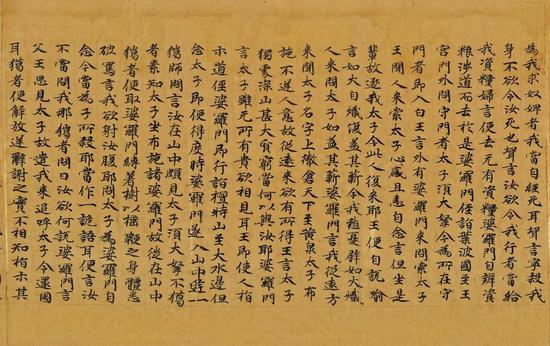 為我求奴婢者我當自經死耳聟言寧殺我
身不欲令汝死也聟言汝欲令我行者當給
我資糧婦言便去无有資糧婆羅門自辦資
粮涉道而去於是婆羅門任詣葉波國至王
宮門外問守門者太子須大拏今為所在守
門者即入白王言外有婆羅門來問索太子
王聞人來索太子心感且恚自念言但坐是
輩故逐我太子今此人復來耶王便自說喻
言如火熾復益其薪今我愁憂譬如火熾
人來問太子如益其薪婆羅門言我從遠方
來聞太子名字上徹倉天下至黃泉太子布
施不逆人意故從遠來欲有所得王言太子
獨處深山甚大貧窮當何以與汝婆羅門
言太子雖元所有貴欲相見耳王即使人指
示道徑婆羅門即行詣檀特山至大水邊但
念太子即便得度時婆羅門遂入山中逢一
獦師問言汝在山中頗見太子須大拏不獦
者素知太子坐布施諸婆羅門故徙在山中
獦者便取婆羅門縛著樹以捶鞭之身體悉
破罵言我欲射汝腹耶問太子為婆羅門自
念今當為子所煞耶當作一詭語耳便言汝
不當問我耶獦者問曰汝欲何說婆羅門言
父王思見太子故遣我來追呼太子令還國
耳獦者便解放逆辭謝之實不相知指示其